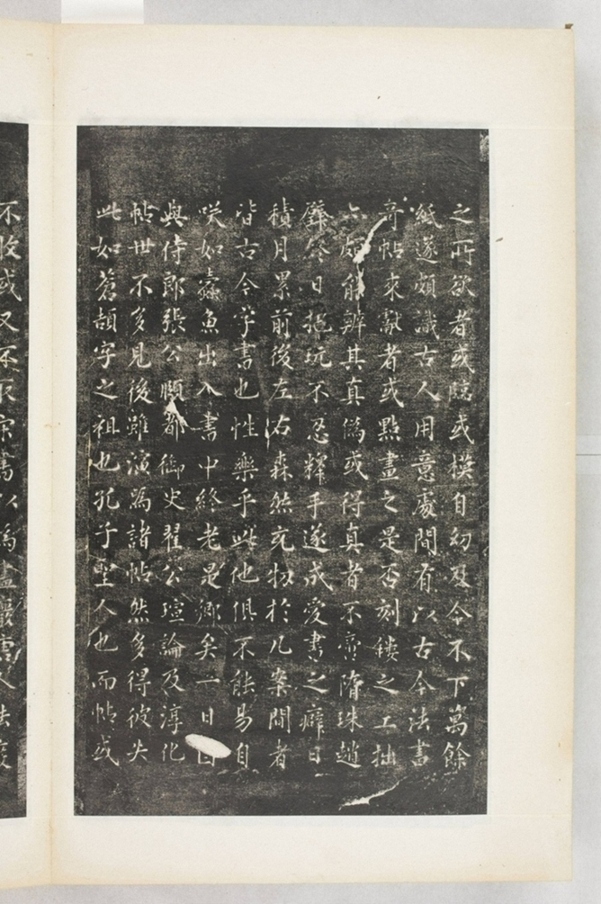 之所欲者或臨或模自幼及今不下萬餘
紙遂頗識古人用意處間有以古今法書
奇帖來獻者或點畫之是否刻鏤之工拙
頗能辨其真偽或得真者不啻隋珠趙
璧今日把玩不忍釋手遂成愛書之癖日
積月累前後左右森然充物於几案間者
皆古今字書也性樂乎此他俱不能易自
咲如蠹魚出入書中終老是鄉矣一日
與侍郎張公頤都御史翟公瑄論及淳化
帖世不多見後雖演為諸帖然多得彼失
此如蒼頡字之祖也孔子聖人也而帖或
不收或又不取宋